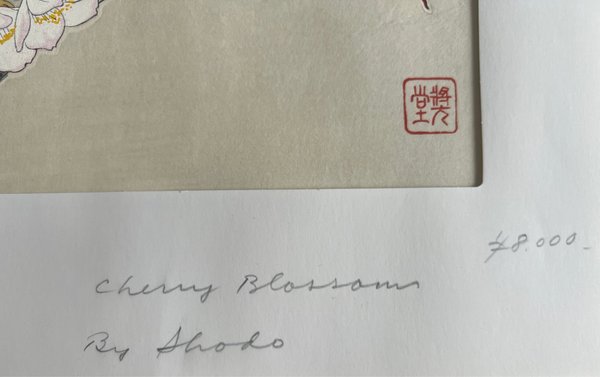 奬堂
¥8.000-
Cherry Blossoms
By Shodo